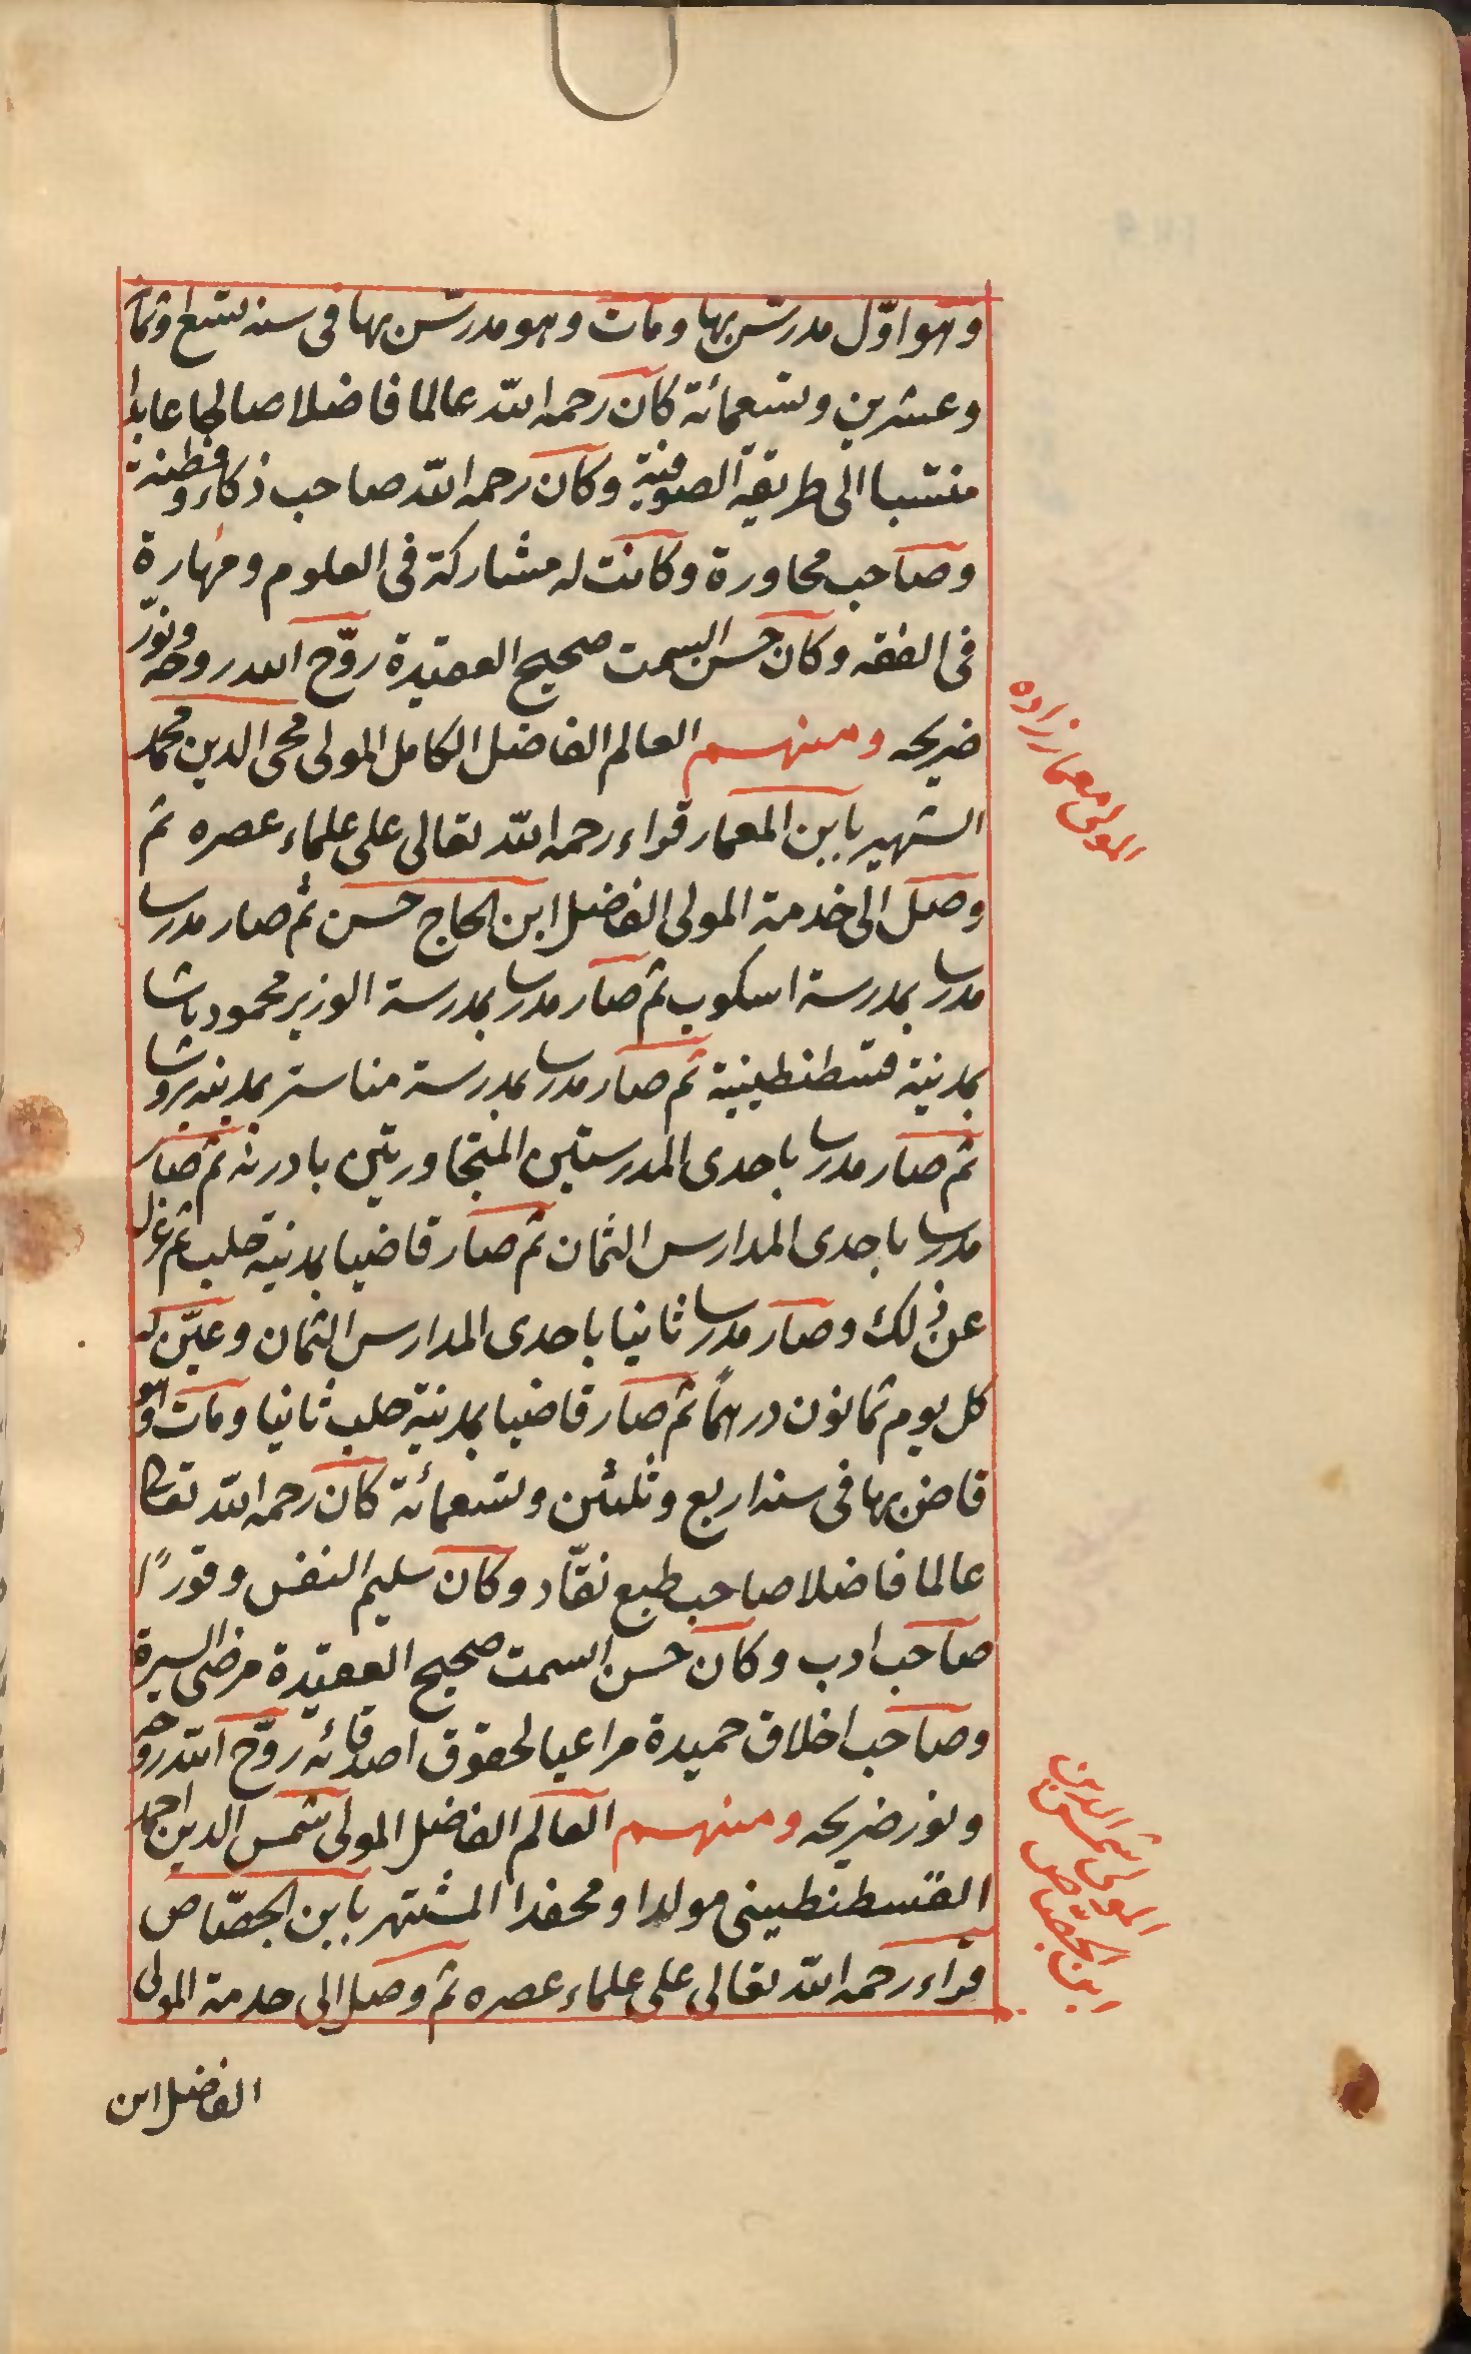 وهو اوّل مدرّس بها ومات وهو مدرّس بها فى سنه تسع وثما
وعشرين وتسعمائة كان رحمه الله عالما فاضلا صالحا عابدا
منتسبا الى طريقة الصوفية وكان رحمه الله صاحب ذكاء وفطنة
وصاحب محاورة وكانت له مشاركة فى العلوم ومهارة
فى الفقه وكان حسن السمت صحيح العقيدة روّح الله روحه ونوّر
ضريحه ومنهم العالم الفاضل الكامل المولى محى الدين محمد
الشهير بابن المعمار قراء رحمه الله تعالى على علماء عصره ثم
وصل الى خدمة المولى الفاضل ابن الحاج حسن ثم صار مدرسا
مدرسا بمدرسة اسكوب ثم صار مدرسا بمدرسة الوزير محمود باشا
بمدينة قسطنطينية ثم صار مدرسا بمدرسة مناستر بمدينة بروسا
ثم صار مدرسا باحدى المدرستين المتجاورتين بادرنه ثم صار
مدرسا باحدى المدارس الثمان ثم صار قاضيا بمدينة حلب ثم عزل
عن ذلك وصار مدرسا ثانيا باحدى المدارس الثمان وعيّن له
كل يوم ثمانون درهمًا ثم صار قاضيا بمدينة حلب ثانيا ومات وهو
قاض بها فى سنة اربع وثلثين وتسعمائة كان رحمه الله تعالى
عالما فاضلا صاحب طبع نقّاد وكان سليم النفس وقورًا
صاحب ادب وكان حسن السمت صحيح العقيدة مرضى السيرة
وصاحب اخلاق حميدة مراعيا لحقوق اصدقائه روّح الله روحه
ونور ضريحه ومنهم العالم الفاضل المولى شمس الدين احمد
القسطنطينى مولدا ومحفدا المشتهر بابن الجصّاص
قراء رحمه الله تعالى على علماء عصره ثم وصل الى خدمة المولى
الفاضل ابن
المولى معمار زاده
المولى شمس الدين
ابن الجصّاص